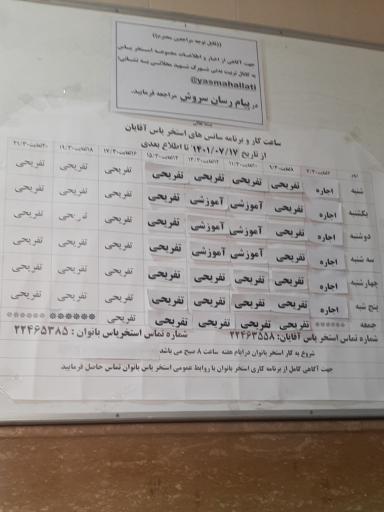 ((قابل توجه مراجعین محترم))
جهت آگاهی از اخبار و اطلاعات مجموعه استخر یاس
به کانال تربیت بدنی شهرک شهید محلاتی به نشانی:
@yasmahallati
در پیام رسان سروش مراجعه فرمایید.
ساعت کار و برنامه سانس های استخر یاس آقایان
از تاریخ ۱۴۰۱/۰۷/۱۷ تا اطلاع بعدی
شنبه اجاره تفریحی تفریحی تفریحی تفریحی تفریحی تفریحی تفریحی
یکشنبه اجاره تفریحی آموزشی آموزشی تفریحی تفریحی تفریحی تفریحی
دوشنبه اجاره تفریحی آموزشی آموزشی تفریحی تفریحی تفریحی تفریحی
سه شنبه اجاره تفریحی آموزشی آموزشی تفریحی تفریحی تفریحی تفریحی
چهارشنبه اجاره تفریحی تفریحی تفریحی تفریحی تفریحی تفریحی تفریحی
پنج شنبه اجاره تفریحی تفریحی تفریحی تفریحی تفریحی تفریحی تفریحی
جمعه ****** تفریحی تفریحی تفریحی تفریحی تفریحی ****** ******
شماره تماس استخر یاس آقایان: ۲۲۴۶۳۵۵۸ شماره تماس استخریاس بانوان : ۲۲۴۶۵۳۸۵
شروع به کار استخر بانوان درایام هفته ساعت ۸ صبح می باشد
جهت آگاهی کامل از برنامه کاری استخر بانوان با روابط عمومی استخر یاس بانوان تماس حاصل فرمایید